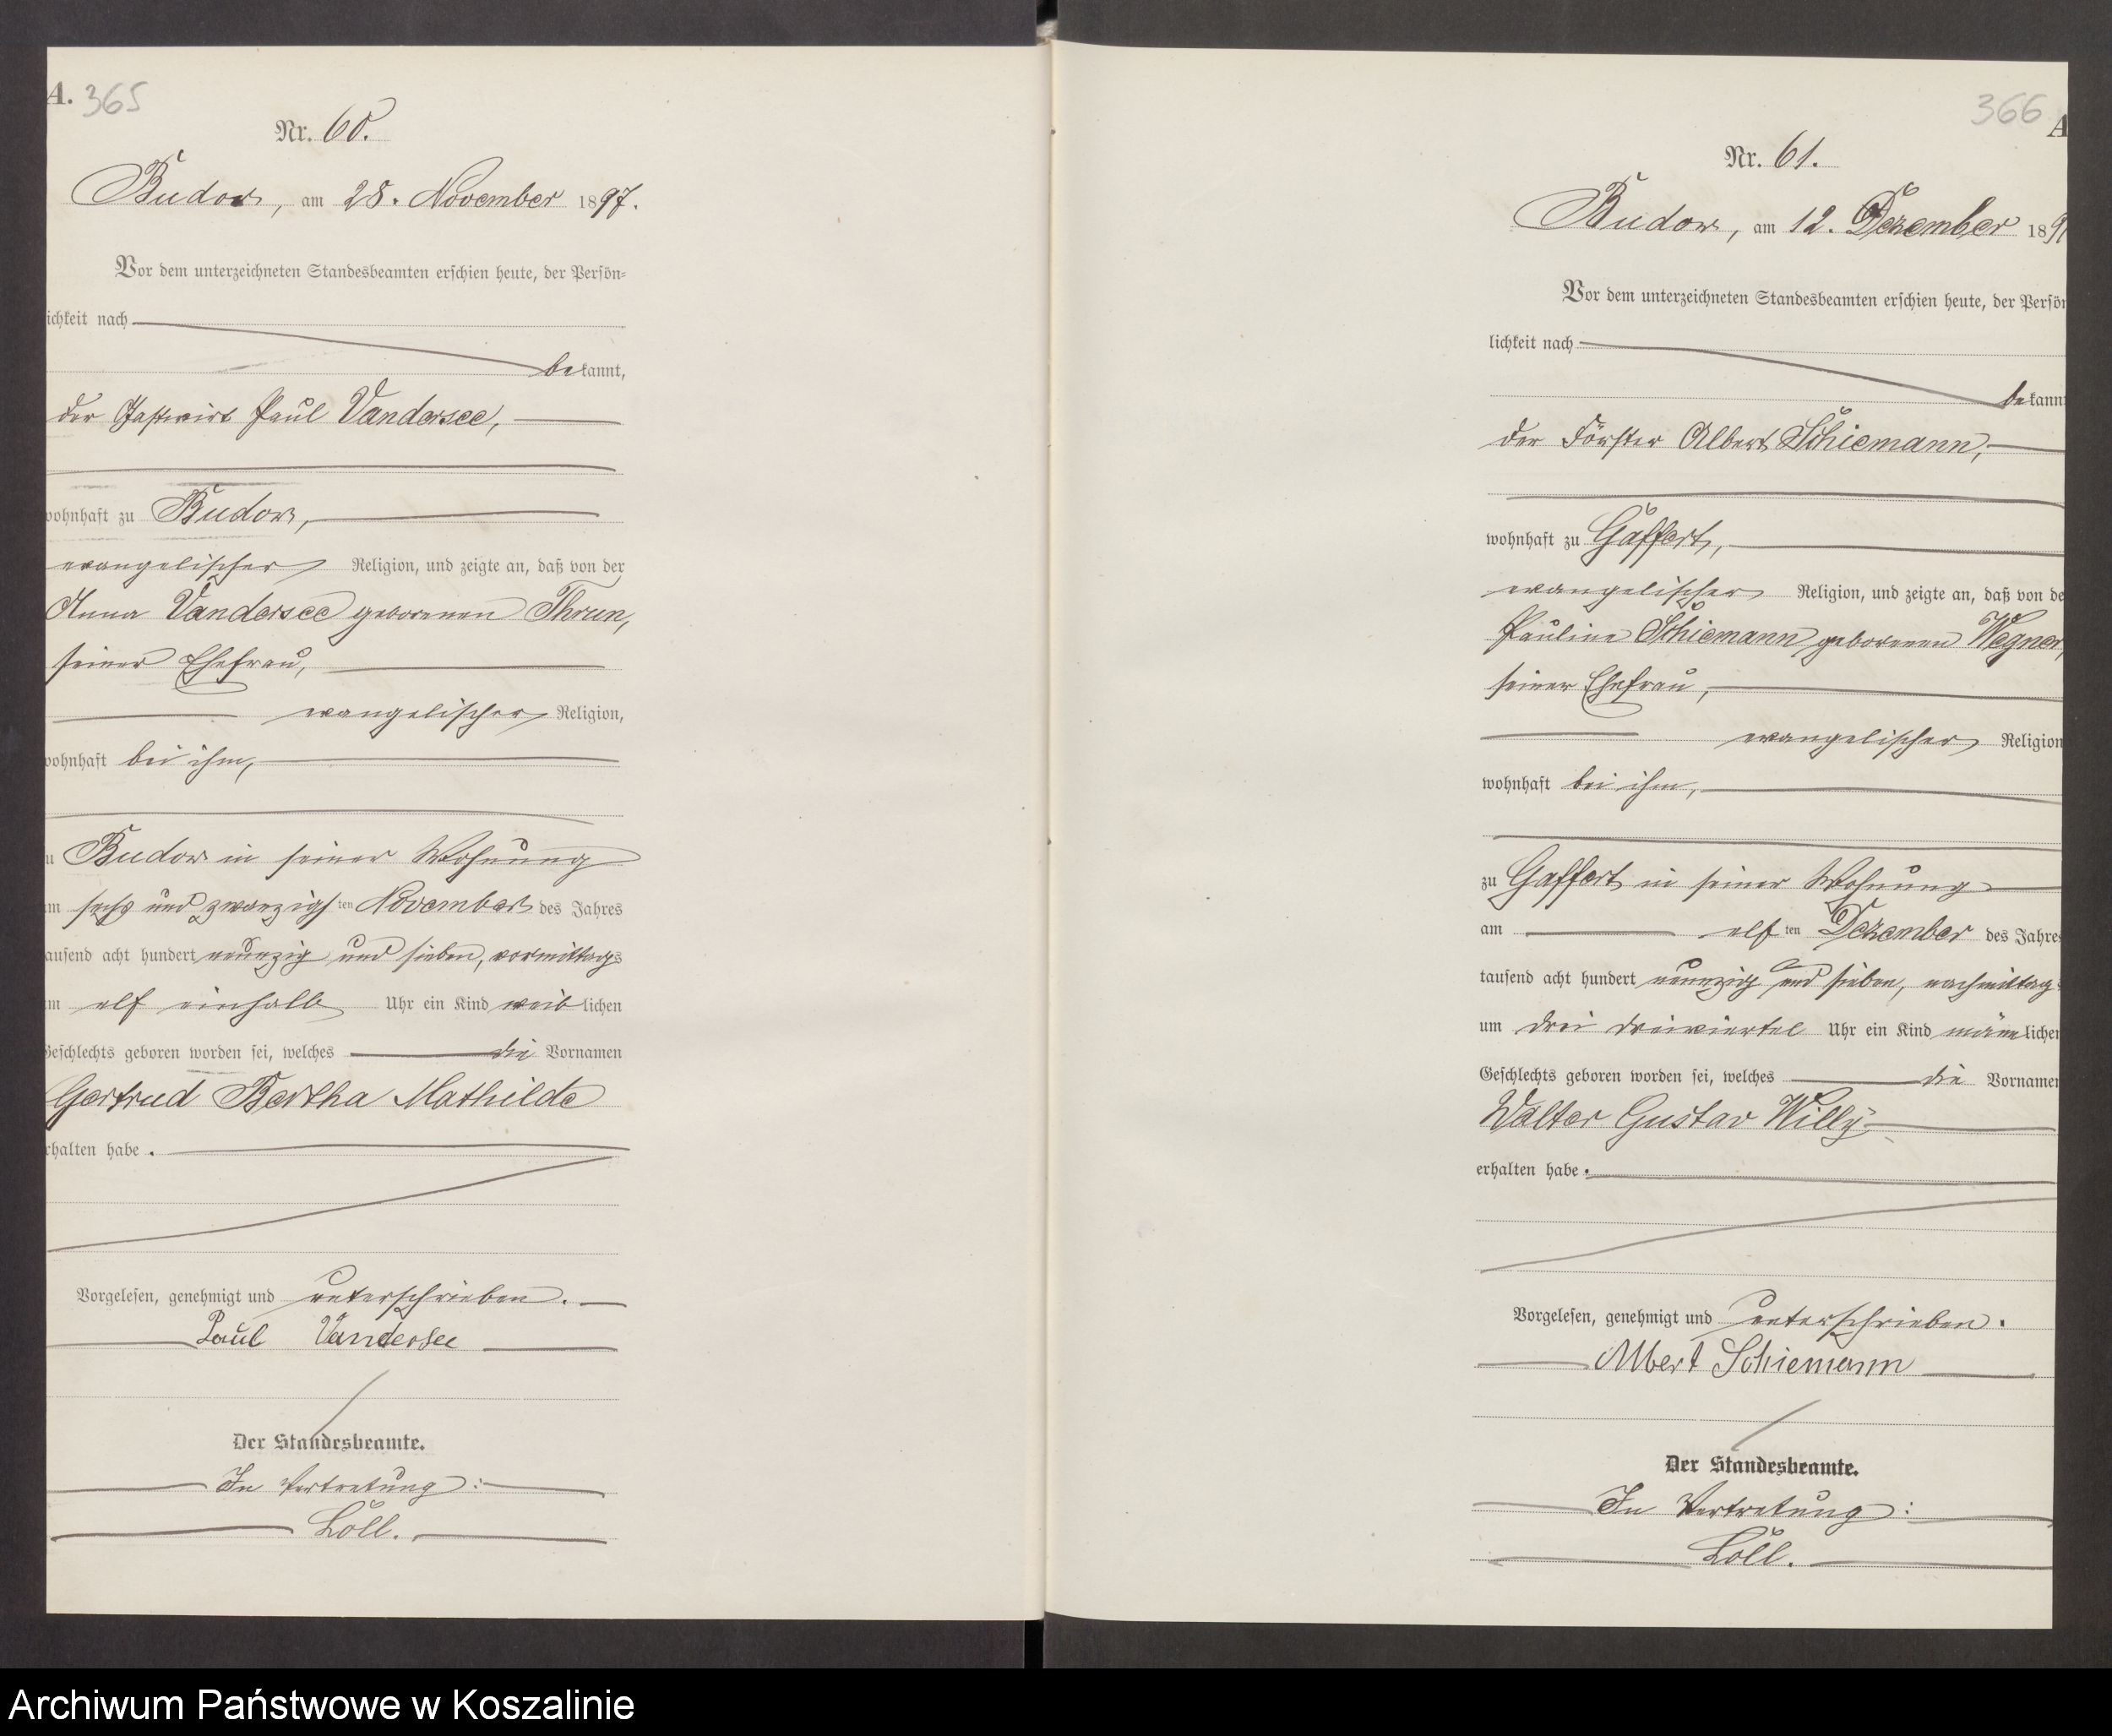 A. 365
Nr. 60.
Budow, am 28. November 1897.
Vor dem unterzeichneten Standesbeamten erschien heute, der Persön-
ichkeit nach
bekannt,
der Gastwirt Paul Vandersee,
wohnhaft zu Budow,
evangelischer Religion, und zeigte an, daß von der
Anna Vandersee geborenen Thrun,
seiner Ehefrau,
evangelischer Religion,
wohnhaft bei ihm,
u Budow in seiner Wohnung
am sechs und zwanzigsten November des Jahres
tausend acht hundert neunzig und sieben, vormittags
um elf einhalb Uhr ein Kind weiblichen
Geschlechts geboren worden sei, welches die Vornamen
Gertrud Bertha Mathilde
erhalten habe.
Vorgelesen, genehmigt und unterschrieben.
Paul Vandersee
Der Standesbeamte.
In Vertretung:
Löll.
366 A
Nr. 61.
Budow, am 12. Dezember 189
Vor dem unterzeichneten Standesbeamten erschien heute, der Persön
lichkeit nach
bekannt
der Förster Albert Schiemann,
wohnhaft zu Gaffert,
evangelischer Religion, und zeigte an, daß von de
Pauline Schiemann geborenen Wegner,
seiner Ehefrau,
evangelischer Religion
wohnhaft bei ihm,
zu Gaffert in seiner Wohnung
am elften Dezember des Jahres
tausend acht hundert neunzig und sieben, nachmittags
um drei dreiviertel Uhr ein Kind männlichen
Geschlechts geboren worden sei, welches die Vornamen
Walter Gustav Willy
erhalten habe.
Vorgelesen, genehmigt und unterschrieben.
Albert Schiemann
Der Standesbeamte.
In Vertretung:
Löll.
Archiwum Państwowe w Koszalinie